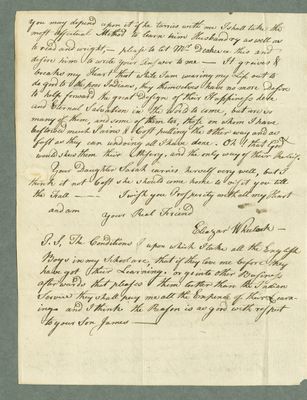 you may depend upon it if he tarries with me I shall take the
most effectual Method to learn him Husbandry as well as
to read and wright, — please to let Mr. this and
desire him to write your answer to me — It grieves &
breaks my Heart that while I am wearing my life out to
do good to the poor Indians, they themselves have no more desire
to help forward the great Design of their Happiness here
and Eternal Salvation in the World to come, but there are so
many of them, and some of them too, those on whom I have
bestowed much Pains & Cost pulling the other way and as
fast as they can undoing all I have done. Oh! that God
would shew them their Misery, and the only way of their Relief.
Your Daughter Sarah carries herself very well, but I
think it not best she should come home to visit you till
the Fall — I wish you Prosperity with all my Heart
and am
Your Real Friend
Eleazar Wheelock
P.S. The Conditions upon which I take all the English
Boys in my School are, that if they leave me before they
have got their Learning, or go into other Business
afterwards that pleases them better than the Indian
Service they shall pay me all the Expence of their Learn-
ing and I think the Reason is as good with respect
to your Son James —